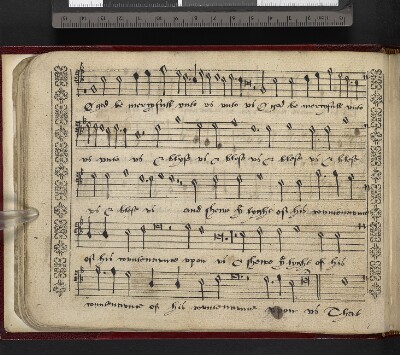 O god be mercyfull unto us unto us & god be mercyfull unto
us unto us & blesse us & blesse us & blesse us & blesse
us & blesse us and shewe yͤ lyght of his countenance
of his countenance upon us & shewe yͤ lyght of his
countenance of his countenance upon us That